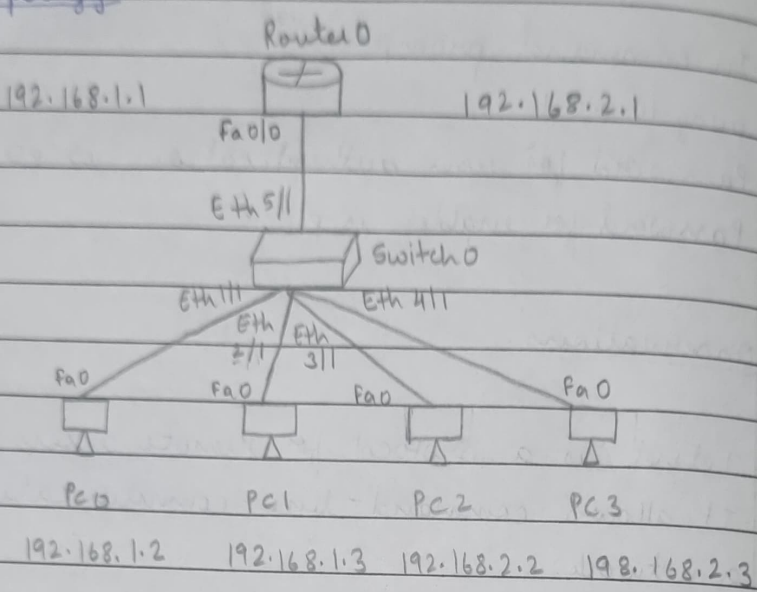 Router0
192.168.1.1 192.168.2.1
Fa0/0
Eth 5/1
Switch0
Eth 1/1 Eth 4/1
Eth 2/1 Eth 3/1
Fa0 Fa0 Fa0 Fa0
PC0 PC1 PC2 PC3
192.168.1.2 192.168.1.3 192.168.2.2 198.168.2.3